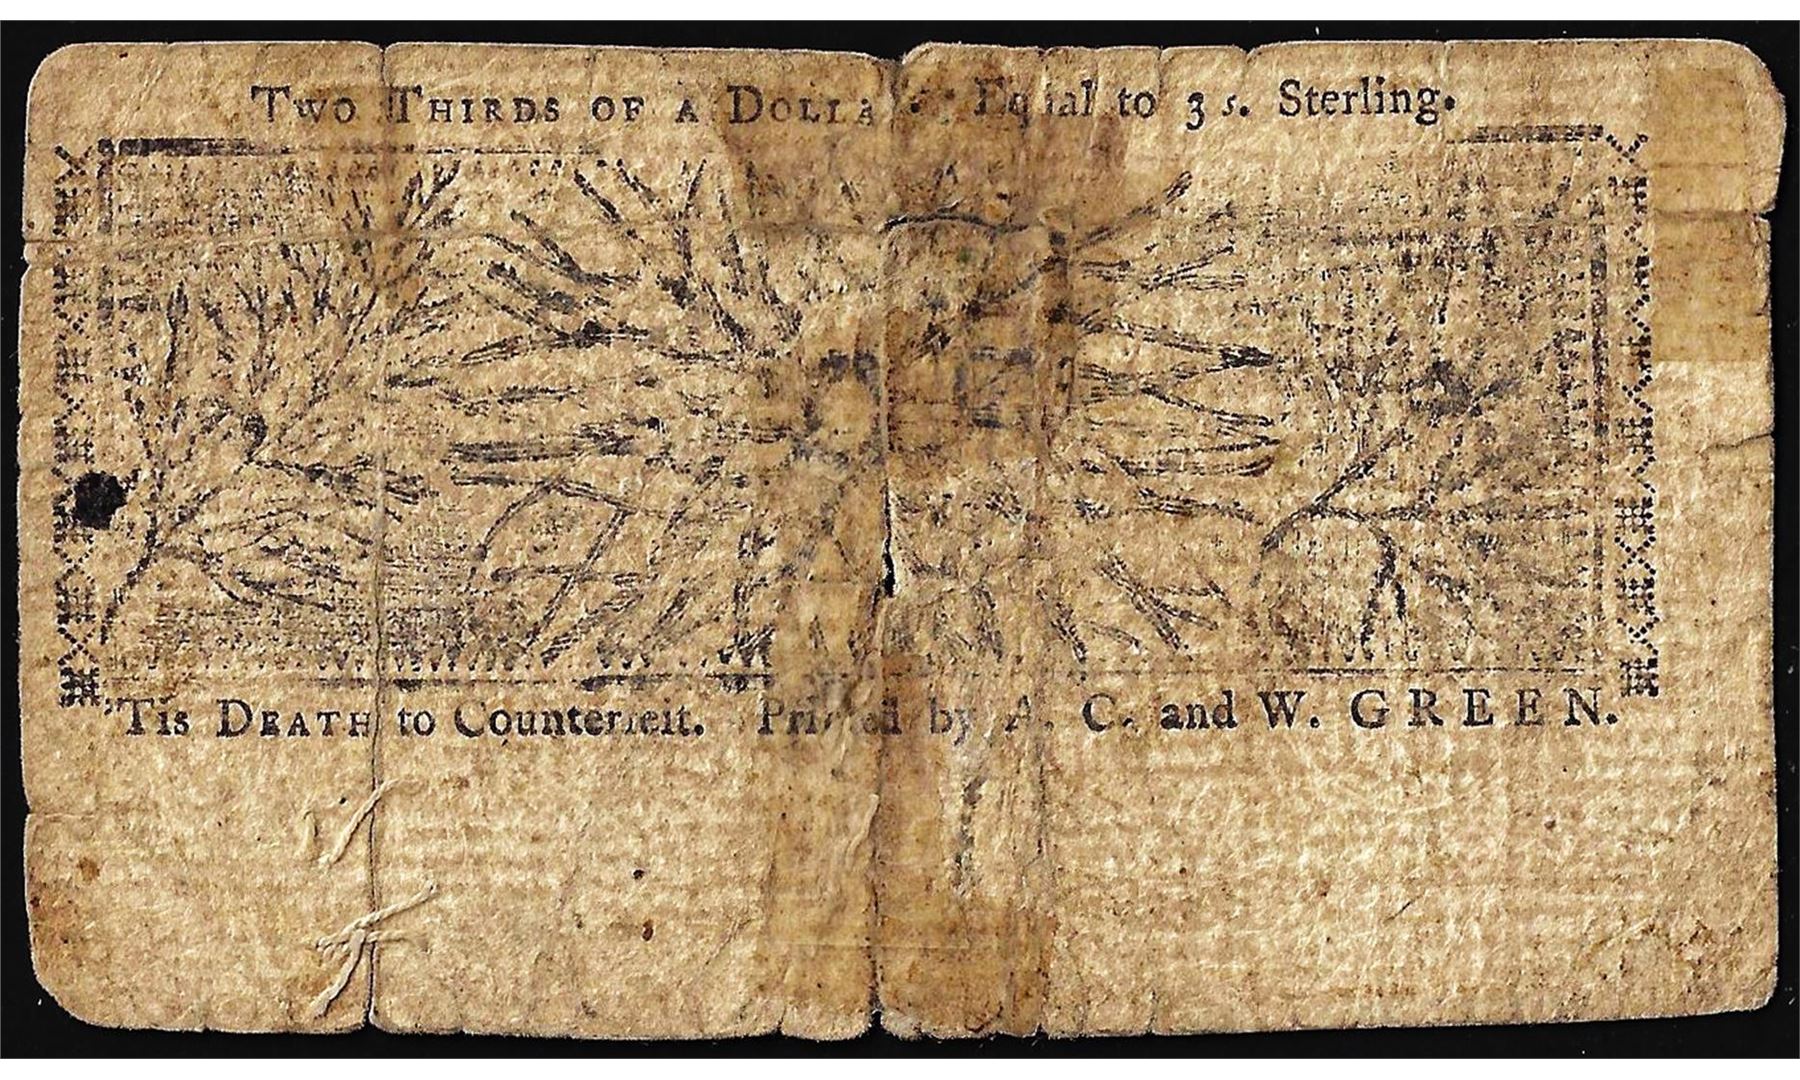 Two Thirds of a Dolla : Equal to 3 s. Sterling.
'Tis Death to Counterfeit. Printed by A. C. and W. GREEN.